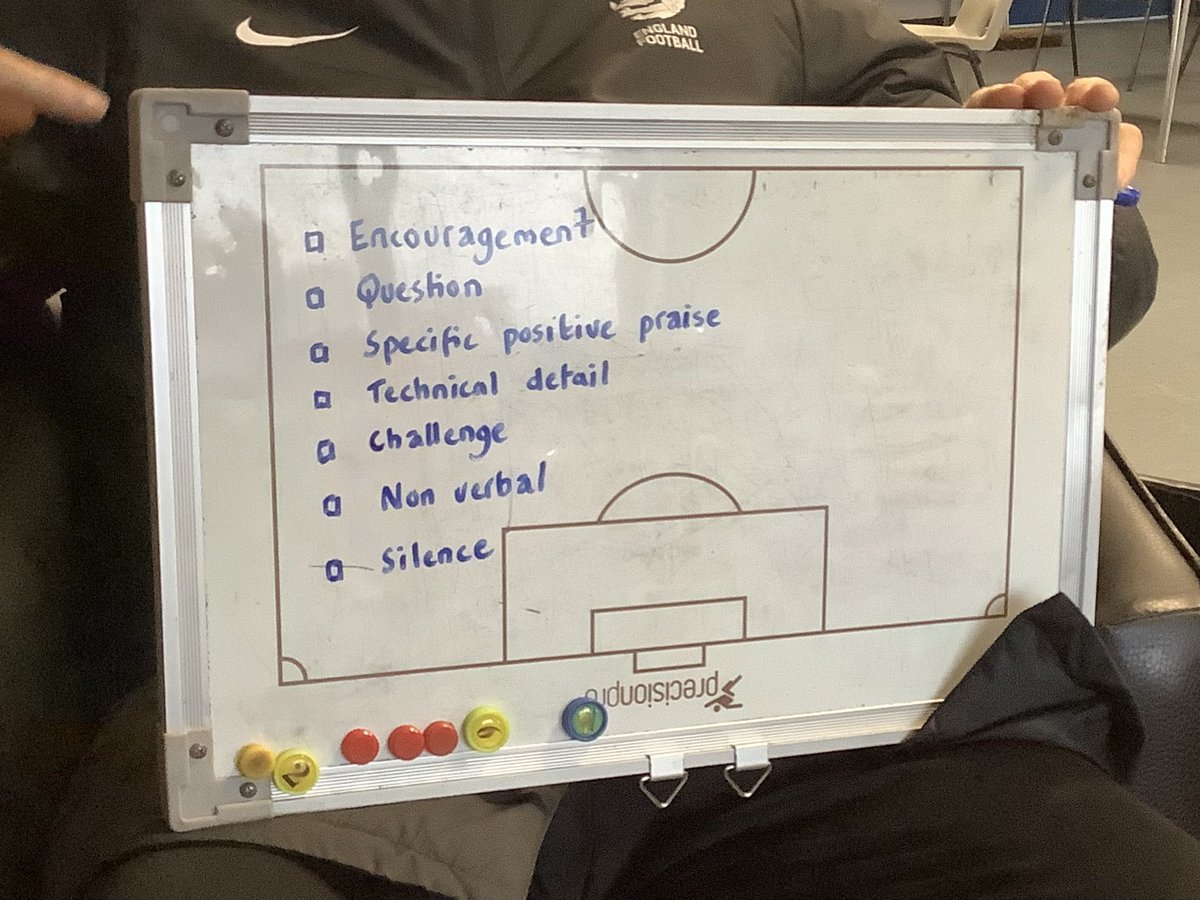 ENGLAND
FOOTBALL
□ Encouragement
□ Question
□ Specific positive praise
□ Technical detail
□ Challenge
□ Non verbal
□ Silence
precisionpro
2